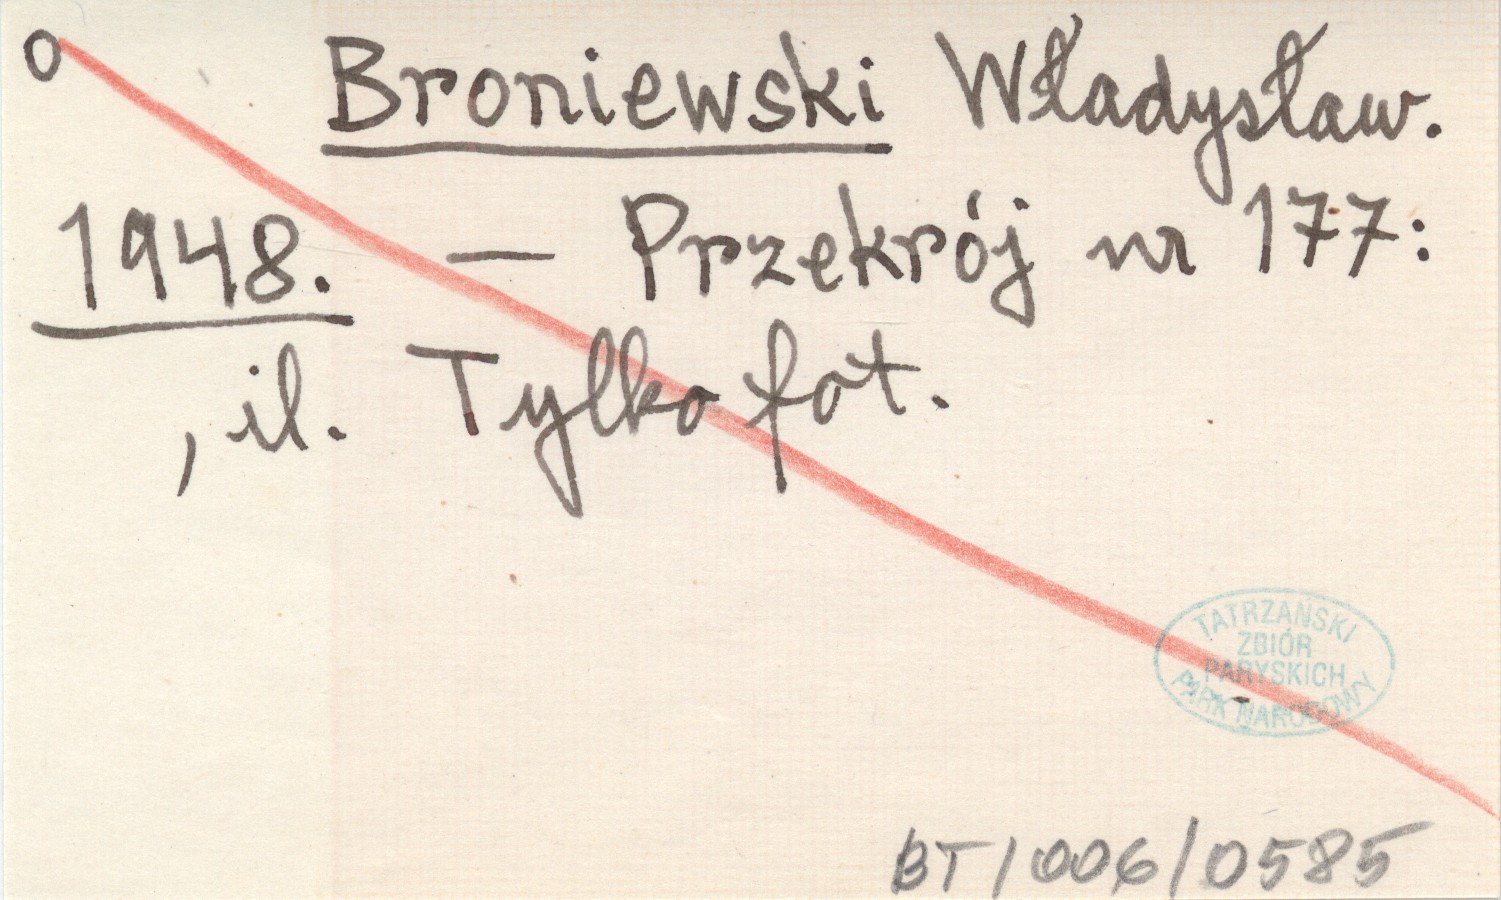 o Broniewski Władysław.
1948. — Przekrój nr 177:
, il. Tylko fot.
TATRZAŃSKI
ZBIÓR
PARYSKICH
PARK NARODOWY
BT/006/0585